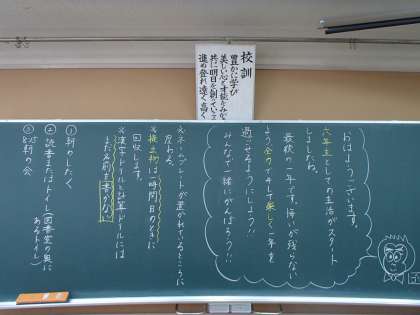 校訓
豊かに学び
美しい心
共に明日を創っていこう
進め登れ遠く高く
おはようございます。
六年生としての生活がスタート
しましたね。
最後の一年です。悔いが残らない
よう全力でそして楽しく一年を
過ごせるようにしよう!!
みんなで一緒にがんばろう!!
※ネームプレートが置かれてあるところに
座る。
※提出物は一時間目のときに
回収します。
※漢字ドリルと計算ドリルには
まだ名前を書かない
①朝のしたく
②読書またはトイレ(図書室の奥に
あるトイレ)
③8:25朝の会